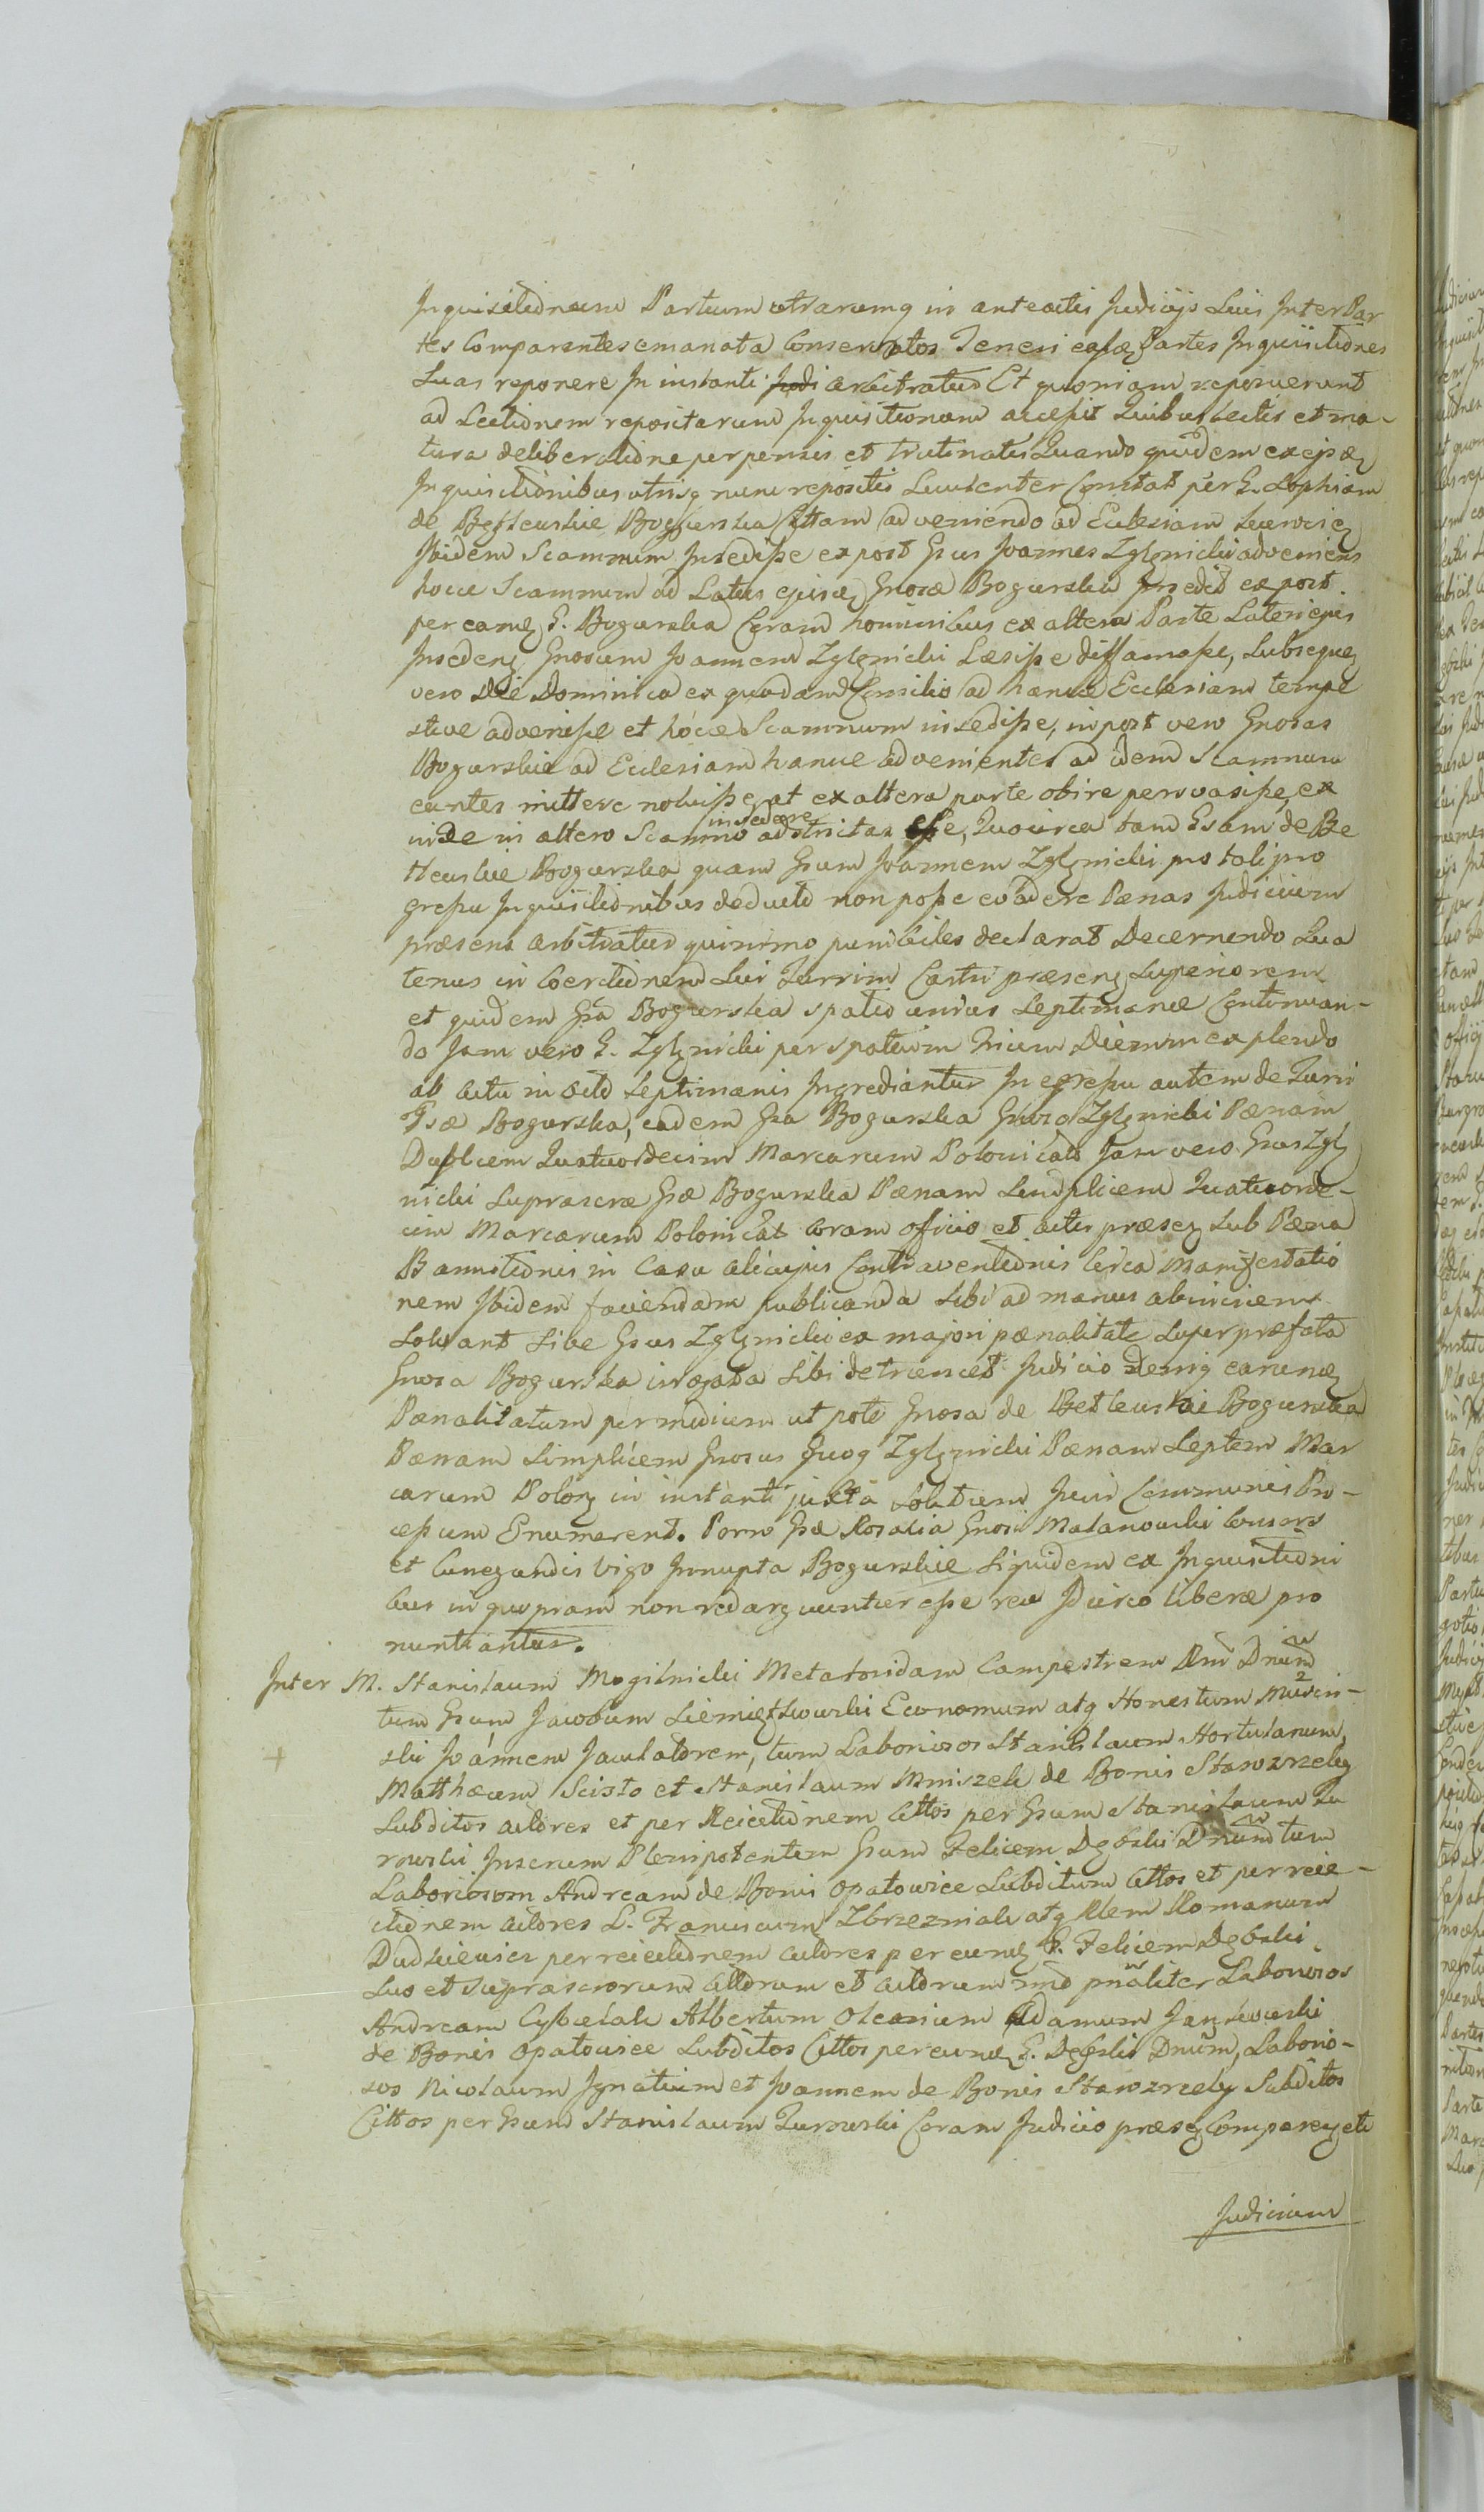 Inquisitionum Partium utrarumq in anteactis Judicijs Suis Inter Par
tes Comparentes emanata Conservatos Teneri easq Partes Inquisitiones
Suas reponere In instanti Judi arbitratur Et quoniam reposuerunt
ad Lectionem repositarum Inquisitionum accessit Quibus lectis et ma-
tura deliberatione perpensis et trutinatis Quando quidem ex ipsis
Inquisitionibus utrisq nunc repositis Luculenter Constat per G. Sophiam
de Bethuskie Bogurska Cittam adveniendo ad Eclesiam
Ibidem Scamnum Insedisse ex post Gsus Joannes Zglznicki adveniens
hocce Scamnum ad Latus ejusq Gnosæ Bogurska Insedit ex post
per eamq G. Bogurska Coram hominibus ex altera Parte Lateri ejus
Insedenz Gnosum Joannem Zglznicki Læsisse diffamasse, Subseque
vero Die Dominica ex quodam Consilio ad hance Ecclesiam tempe
stive advenisse et hocce Scamnum insedisse, in post vero Gnosas
Bogurskie ad Ecclesiam hance advenientes ad idem Scamnum
euntes mittere noluisse, et ex altera parte obire pervasisse, ex
inde in altero Scamno insedere adstrictas esse, Quocirca tam Gsam de Be
tleuskie Bogurska quam Gsum Joannem Zglznicki pro tali pro
gressu Inquisitionibus deducto non posse evadere Pænas Judicium
præsens arbitratur quinimo punibiles declarat Decernendo Qua
tenus in Coercitionem Sui Turrim Castri præsenz Superiorem
et quidem Gsa Bogurska spatio unius Septimanæ Continuan-
do Jam vero G. Zglznicki per spatium trium Dierum explendo
ab actu in octo Septimanis Ingrediantur In egressu autem de Turri
Gsæ Bogurska, eadem Gsa Bogurska Gnoso Zglznicki Pænam
Duplicem Quatuordecim Marcarum Polonicals Jam vero Gsus Zglz
nicki Suprascræ Gsæ Bogurska Pænam Simplicem Quatuorde-
cim Marcarum Polonicals coram officio et actis præsez Sub Pæna
Bannitionis in Casu alicujus Contraventionis Circa Manifestatio
nem Ibidem faciendam publicanda Sibi ad manus abinvicem
Solvant Sive Gsus Zglznicki ex majori pænalitate Super præfata
Gnosa Bogurska irrogata Sibi detruncet Judicio Deniq earumq
Pænalitatum per medium ut pote Gnosa de Betleuskie Bogurska
Pænam Simplicem Gnosus Quoq Zglznicki Pænam Septem Mar
carum Polonz in instanti juxta Solutium Juris Communis Pro-
cessum Enumerent. Porro Gsæ Rosalia Gnosi Malanowski Consors
et Cunegundis Virgo Innupta Bogurskie Siquidem ex Inquisitioni
bus in quopiam non redarguuntur esse reæ Idcirco liberæ pro
nuntiantur.
Inter M. Stanislaum Mogilnicki Metatoridam Campestrem Dnum
tum Gsum Jacobum Economum atq Honestum
ski Joannem Jaculatorem, tum Laboriosos Stanislaum Hortulanum,
Matthæum Scisto et Stanislaum Mniszek de Bonis Starozrzeby
Subditos actores et per Reictionem Cittos per Gsum Stanislaum Tu
rowski Inserum Plenipotentem Gsum Felicem Dębski Dnum tum
Laboriosom Andream de Bonis Opatowice Subditum Cittos et per reie-
ctionem actores L. Franciscum Zbrzezniak atq Rlem Romanum
Dudkiewicz per reiectionem actores per eumq G. Felicem Dębski
Suo et suprascrorum Cittorum et actorum pnaliter Laboriosos
Andream Cybulak Albertum Adamum Jankowski
de Bonis Opatowice Subditos Cittos per eumq G. Dębski Dnum, Laborio-
sos Nicolaum Ignatium et Joannem de Bonis Starozrzeby Subditos
Cittos per Gsum Stanislaum Turowski Coram Judicio præsez Comparenz etc
Judicium